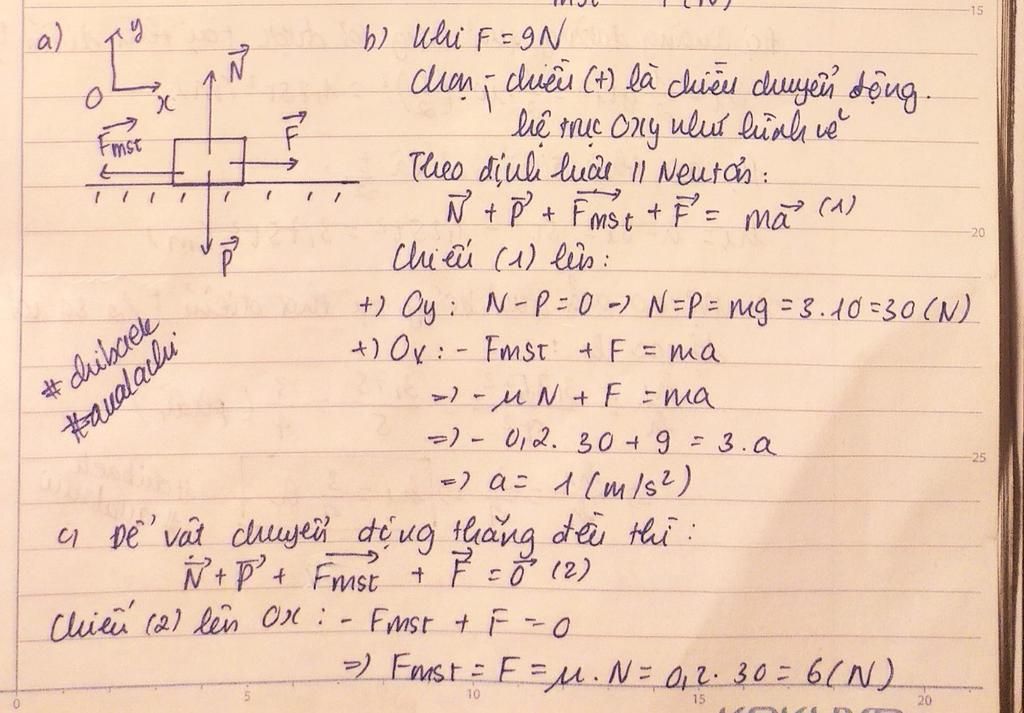 15
a)
y
O
x
N
Fmst
F
P
b) Khi F = 9N
Chọn : chiều (+) là chiều chuyển động.
hệ trục Oxy như hình vẽ
Theo định luật II Newton :
N + P + Fmst + F = ma (1)
20
Chiếu (1) lên :
+) Oy : N - P = 0 → N = P = mg = 3.10 = 30 (N)
+) Ox : - Fmst + F = ma
=> - μN + F = ma
=> - 0,2. 30 + 9 = 3.a
25
=> a = 1 (m/s²)
# chibaek
c) Để vật chuyển động thẳng đều thì :
N + P + Fmst + F = 0 (2)
Chiếu (2) lên Ox : - Fmst + F = 0
=> Fmst = F = μ. N = 0,2. 30 = 6 (N)
0 5 10 15 20